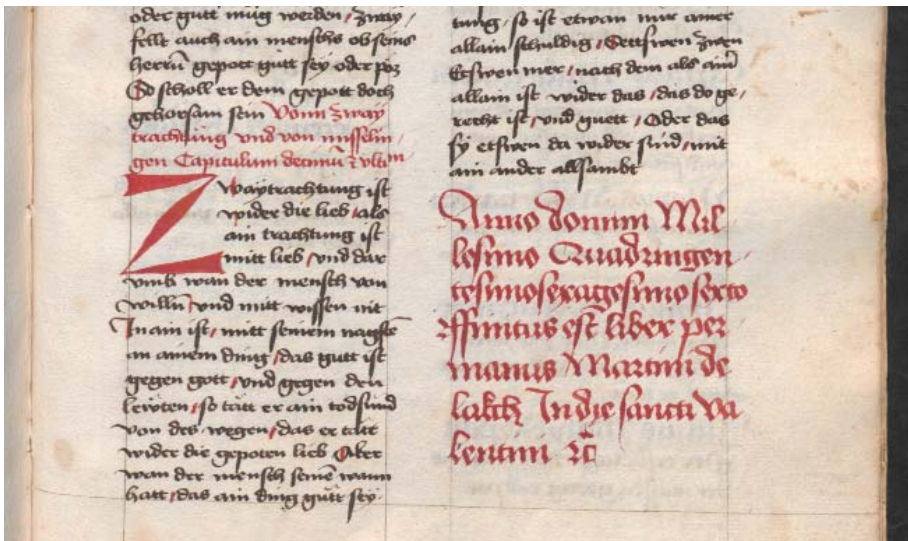 oder gutt müg werden / Zway /
fellt auch ain menschs ob seins
herrn̄ gepott gutt sey oder poz
So scholl er dem gepott doch
gehorsam sein Vonn Zway
trachtung vnd von misselin /
gen Capitulum decimū ⁊ vltim
Zwaytrachtung ist
wider die lieb / als
ain trachtung ist
mitt lieb / vnd dar
vmb wan der mensch von
willn̄ / vnd mitt wissen nit
In ain ist / mitt seinem nagstē
in ainem ding / das gutt ist
gegen gott / vnd gegen den
lewten / so tätt er ain todsund
von des wegen / das er tätt
wider die gepoten lieb Aber
wan der mensch seinē wann
hatt / das ain ding gutt sey
tung / so ist etwan nur ainer
allain schuldig / Settswen zwen
Etswen mer / nach dem als ainē
allain ist wider das / das do ge /
recht ist / vnd guett / Oder das
sy etswen da wider sind / mit
ain ander allsambt
Anno domini Mil
lesimo Quadringen
tesimosexagesimosexto
ffinitus est liber per
manus Martini de
lakch In die sancti Va
lentini ⁊c